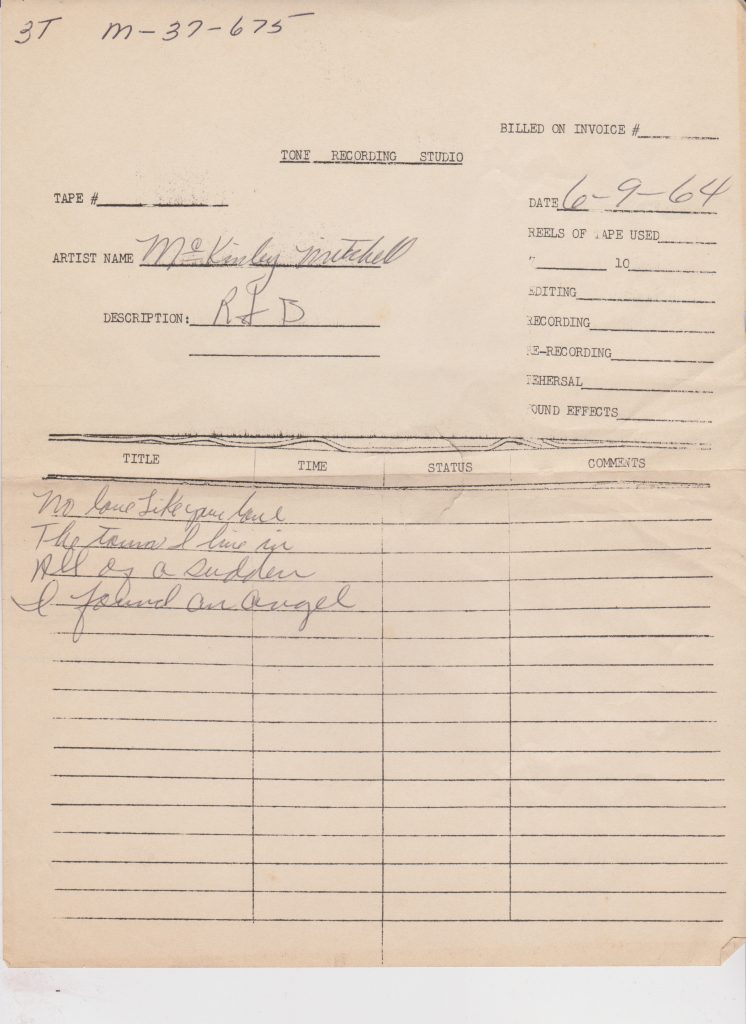 3T M-37-675
BILLED ON INVOICE #
TONE RECORDING STUDIO
TAPE #
DATE 6-9-64
REELS OF TAPE USED
ARTIST NAME McKinley Mitchell
7" 10
EDITING
DESCRIPTION: R & B
RECORDING
RE-RECORDING
REHERSAL
SOUND EFFECTS
TITLE TIME STATUS COMMENTS
No love Like your love
The town I live in
All of a sudden
I found an angel